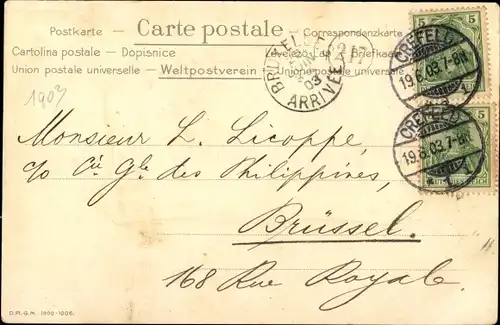 Postkarte – Carte postale – Correspondenzkarte
Cartolina postale – Dopisnice – Levelező-Lap – Briefkaart
Union postale universelle – Weltpostverein – Unione postale universale
5 5
CREFELD
19.6.03.7-8N
BRUXELLES
03
ARRIVEE
1903
5
CREFELD
19.6.03.7-8N
DEUTSCHES REICH
Monsieur L. Licoppe,
c/o Cie Gle des Philippines,
Brüssel.
168 Rue Royale.
D.R.G.M. 1900-1006.